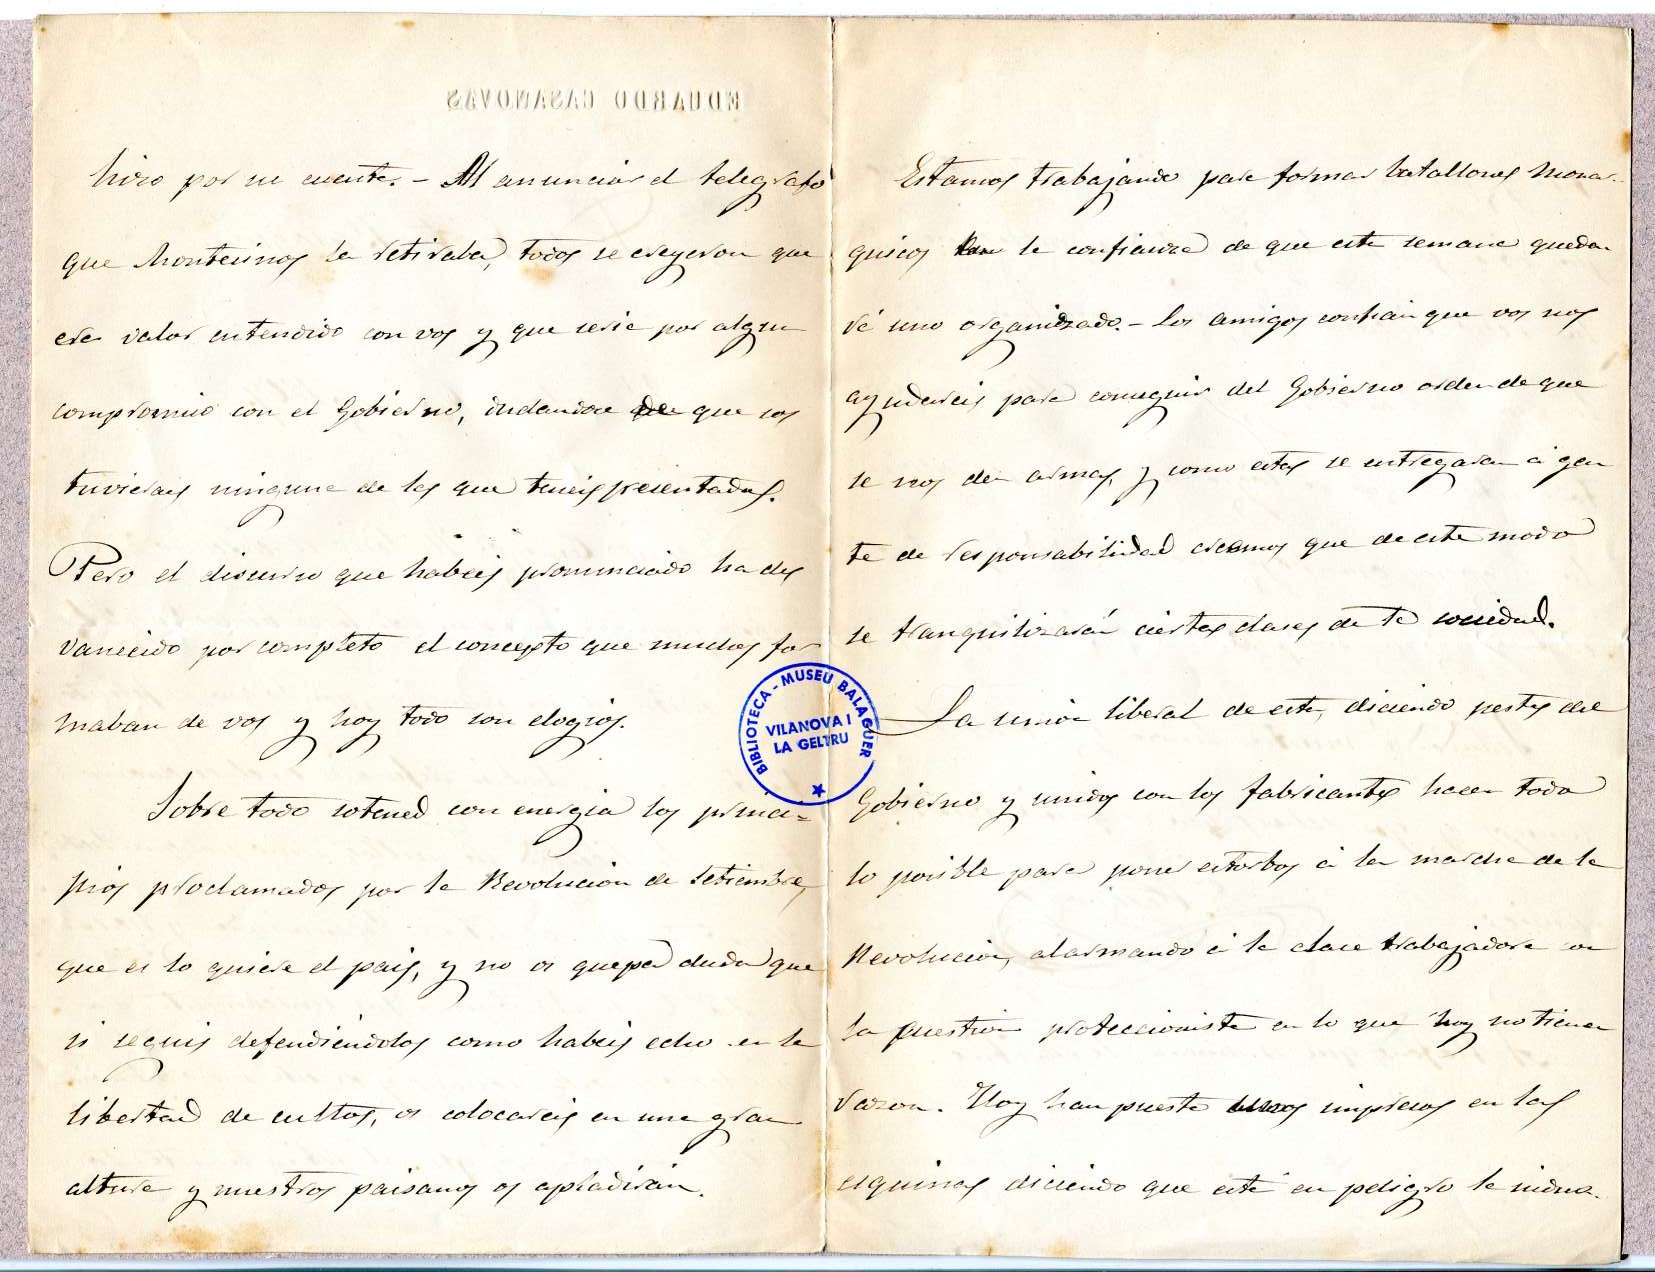 EDUARDO CASANOVAS
hizo por su cuenta. - Al anunciar el telegrafo
que Montecinos se retiraba, todos se creyeron que
era valor entendido con vos y que seria por algun
compromiso con el Gobierno, dudandose de que sos
tuvierais ninguna de las que teneis presentadas.
Pero el discurso que habeis pronunciado ha des
vanecido por completo el concepto que muchos for
maban de vos y hoy todo son elogios.
Sobre todo sotened con energia los princi-
pios proclamados por la Revolucion de Setiembre,
que es lo quiere el pais, y no os quepa duda que
si seguis defendiéndolos como habeis echo en la
libertad de cultos, os colocareis en una gran
altura y nuestros paisanos os apladirán.
Estamos trabajando para formar batallones Monar-
quicos la confianza de que esta semana queda
rá uno organizado. - Los amigos confian que vos nos
ayudareis para conseguir del Gobierno orden de que
se nos den armas, y como estas se entregaran á gen
te de responsabilidad creemos que de este modo
se tranquilizarán ciertas clases de la sociedad.
La union liberal de esta, diciendo pestes del
Gobierno y unidos con los fabricantes hacen todo
lo posible para poner estorbos á la marcha de la
Revolucion, alarmando á la clase trabajadora con
la question proteccionista en lo que hoy no tienen
razon. Hoy han puesto unos impresos en las
esquinas diciendo que está en peligro la indus-
BIBLIOTECA - MUSEU BALAGUER
VILANOVA I
LA GELTRU